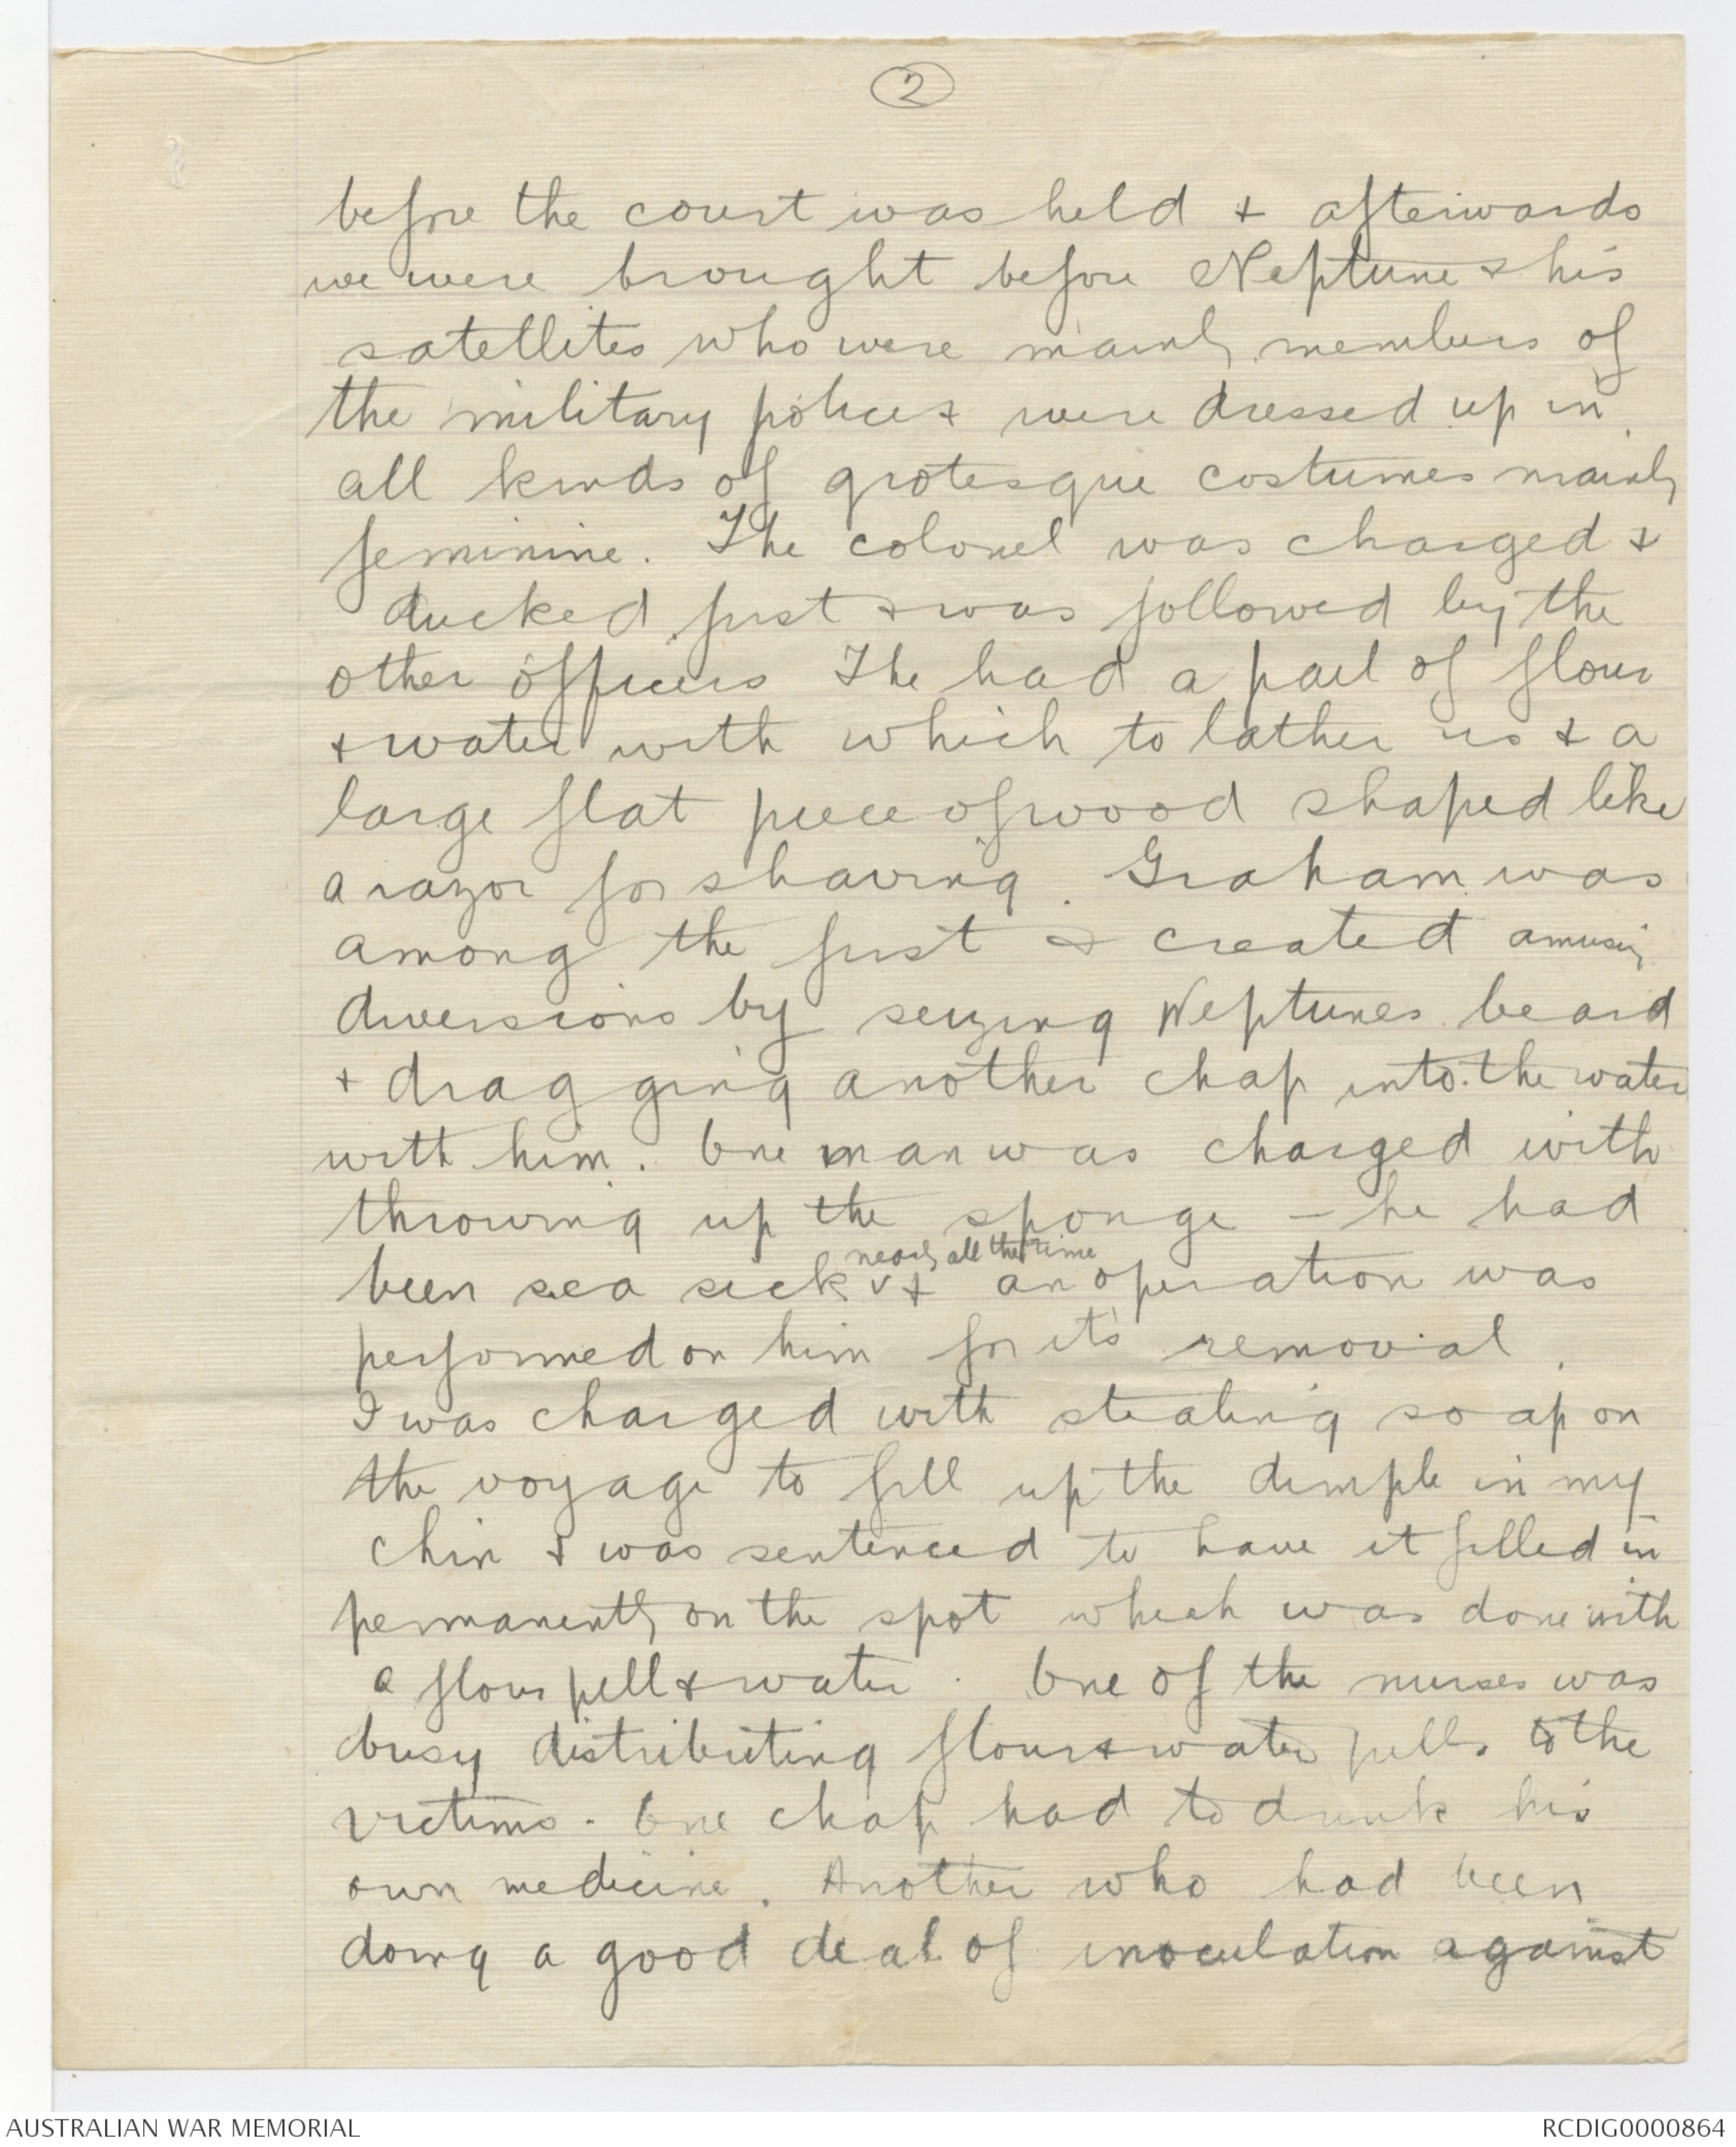 2
before the court was held & afterwards
we were brought before Neptune & his
satellites who were mainly members of
the military police & were dressed up in
all kinds of grotesque costumes mainly
feminine. The colonel was charged &
ducked first & was followed by the
other officers The had a pail of flour
& water with which to lather us & a
large flat piece of wood shaped like
a razor for shaving. Graham was
among the first & created amusing
diversions by seizing Neptunes beard
& dragging another chap into the water
with him. One man was charged with
throwing up the sponge - he had
nearly all the time
been sea sick & an operation was
performed on him for its removal.
I was charged with stealing soap on
the voyage to fill up the dimple in my
chin & was sentenced to have it filled in
permanently on the spot which was done with
a flour pill & water. One of the nurses was
busy distributing flour & water pills to the
victims. One chap had to drink his
own medicine. Another who had been
doing a good deal of inoculation against
AUSTRALIAN WAR MEMORIAL
RCDIG0000864